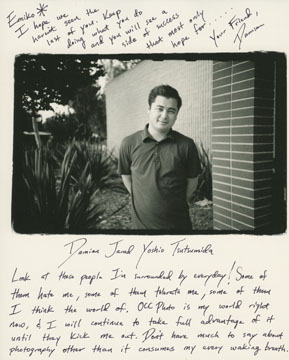 Emiko*
I hope we the
havent seen the
last of you. Keep
doing what you do
and you will see a
side of success
that most only
hope for.....
Your Friend,
Damian
Damian Jarod Yoshio Tsutsumida
Look at these people I'm surrounded by everyday! Some of
them hate me, some of them tolerate me, some of them
I think the world of. OCC Photo is my world right
now, & I will continue to take full advantage of it
until they kick me out. Don't have much to say about
photography other than it consumes my every waking breath.